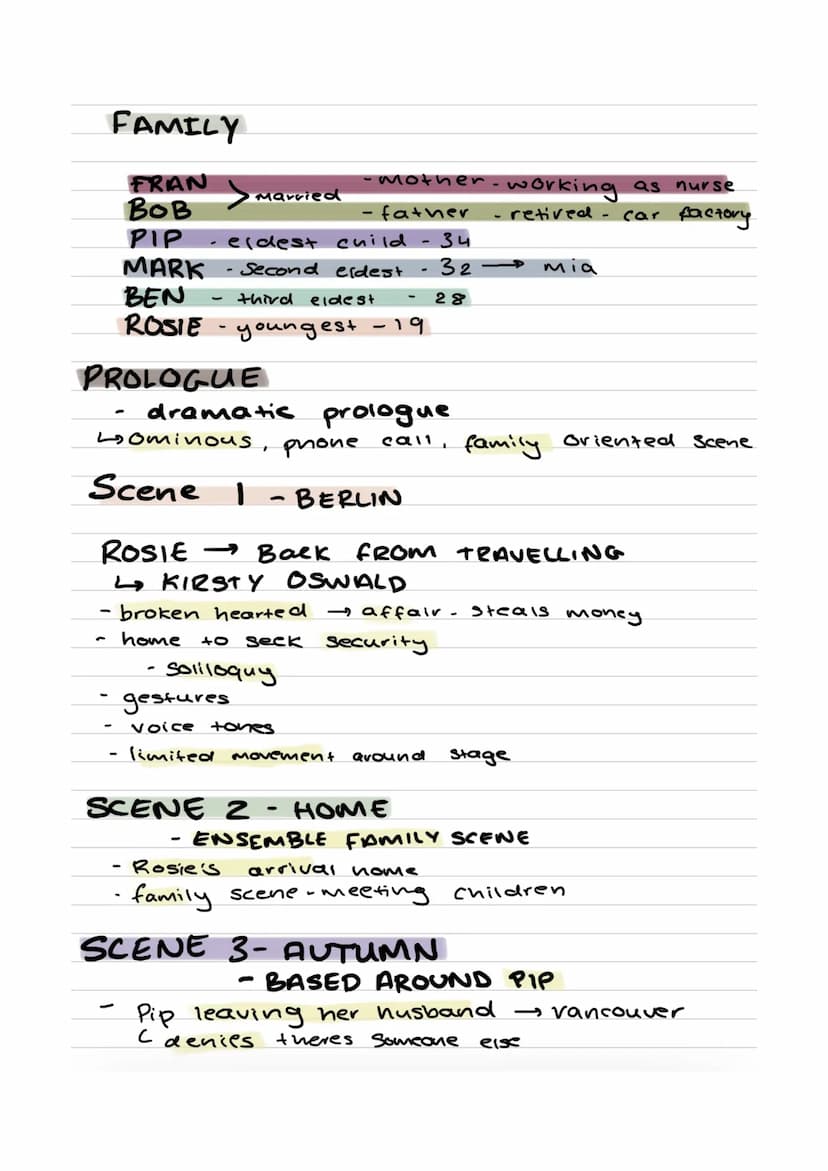 FAMILY
FRAN - mother - working as nurse
> married
BOB - father - retired - car factory
PIP - eldest child - 34
MARK - Second eldest - 32 → mia
BEN - third eldest - 28
ROSIE - youngest - 19
PROLOGUE
- dramatic prologue
↳ ominous, phone call, family oriented scene
Scene 1 - BERLIN
ROSIE → Back FROM TRAVELLING
↳ KIRSTY OSWALD
- broken hearted → affair - steals money
- home to seek security
- soliloquy
- gestures
- voice tones
- limited movement around stage
SCENE 2 - HOME
- ENSEMBLE FAMILY SCENE
- Rosie's arrival home
- family scene - meeting children
SCENE 3 - AUTUMN
- BASED AROUND PIP
- Pip leaving her husband → vancouver
( denies theres someone else